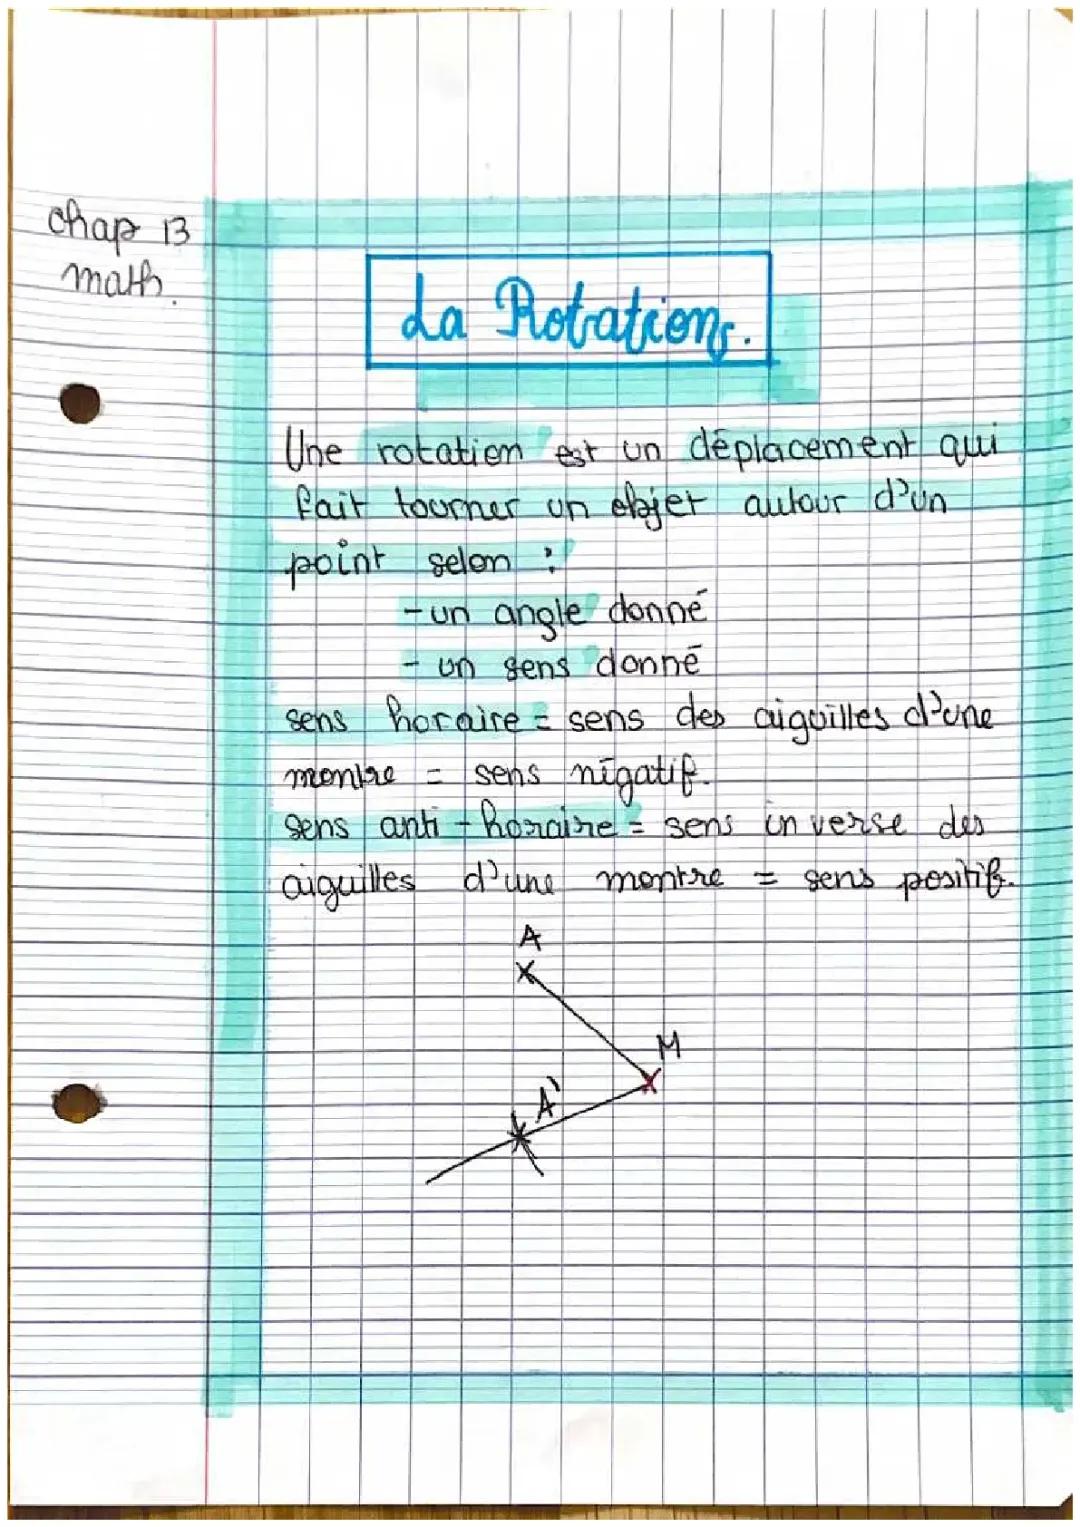 chap 13
math.
La Rotation.
Une rotation est un déplacement qui
fait tourner un objet autour d'un
point selon :
- un angle donné
- un sens donné
sens horaire = sens des aiguilles d'une
montre = sens négatif.
sens anti-horaire = sens inverse des
aiguilles d'une montre = sens positif.
A
M
A'